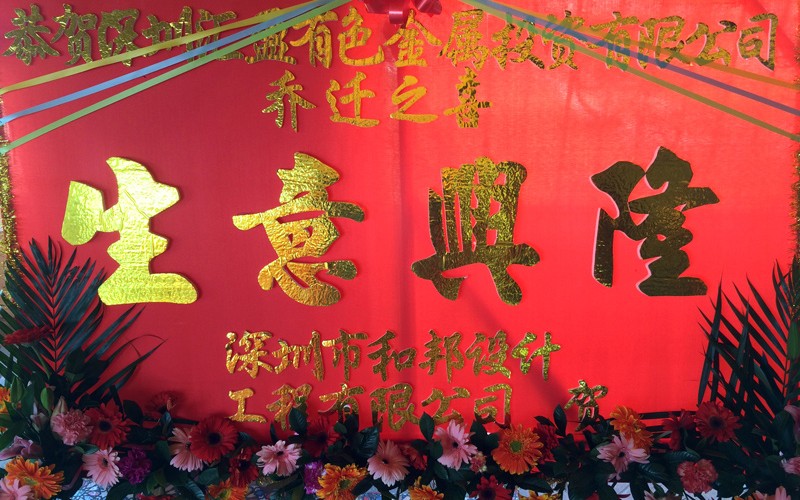 恭贺深圳汇盈有色金属投资有限公司
乔迁之喜
生意興隆
深圳市和邦设计
工程有限公司 贺